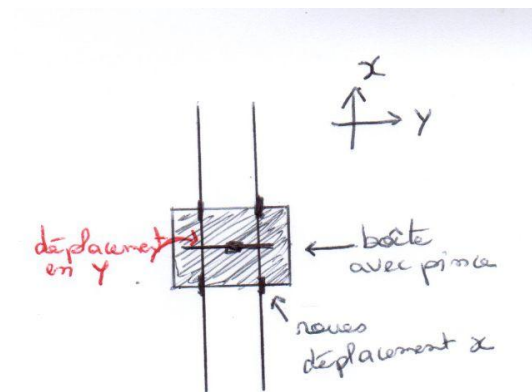 x
y
déplacement
en y
boîte
avec pince
roues
déplacement x